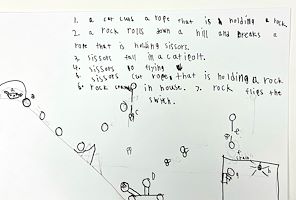 1. a cat cuts a rope that is holding a rock
2. a rock rolls down a hill and breaks a
rope that is holding sissors.
3. sissors fall in a catipolt.
4. sissors go flying
5. sissors cut rope that is holding a rock
6. rock in house. 7. rock flies the
swich.